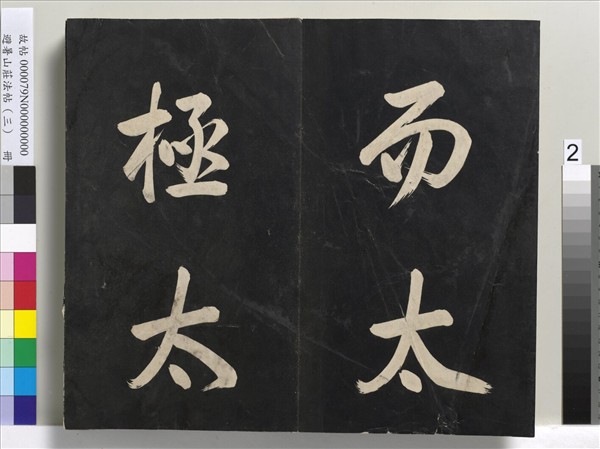 而太
極太
故帖 000079N000000000
避暑山莊法帖（三） 冊
2